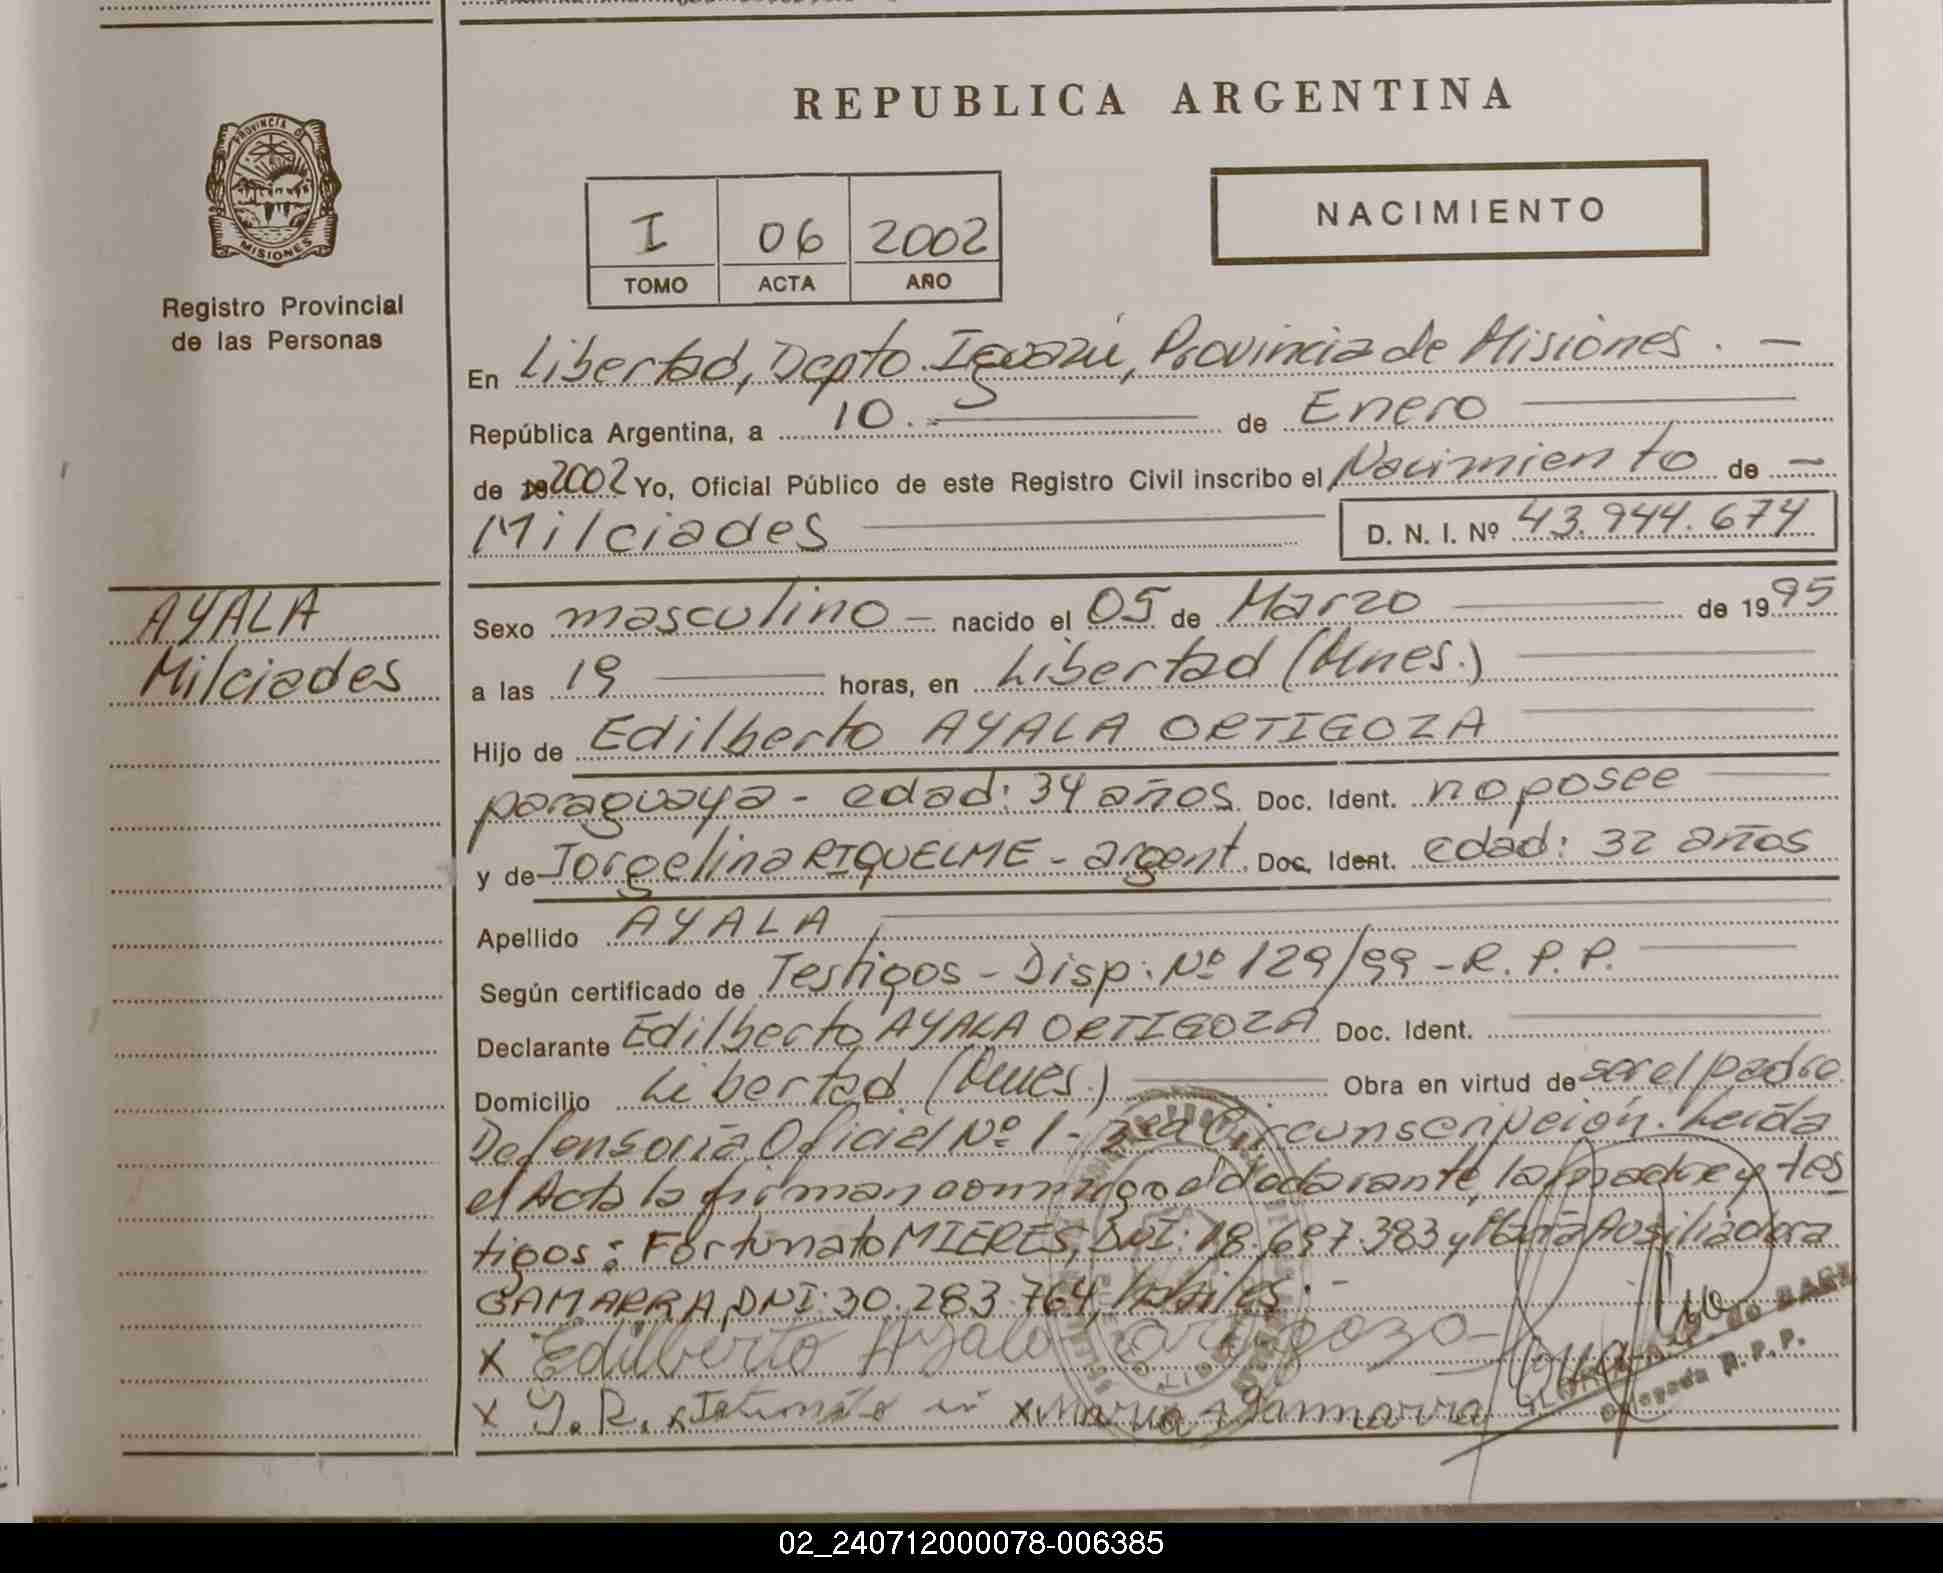 REPUBLICA ARGENTINA
PROVINCIA DE
MISIONES
Registro Provincial
de las Personas
NACIMIENTO
I 06 2002
TOMO ACTA AÑO
En Libertad, Depto. Iguazú, Provincia de Misiones. —
República Argentina, a 10. — de Enero
de 192002 Yo, Oficial Público de este Registro Civil inscribo el Nacimiento de —
Milciades D. N. I. Nº 43.944.674
AYALA
Milciades
Sexo masculino — nacido el 05 de Marzo de 1995
a las 19 horas, en Libertad (Mnes.)
Hijo de Edilberto AYALA ORTIGOZA
paraguaya - edad: 34 años Doc. Ident. no posee
y de Jorgelina RIQUELME - argent. Doc. Ident. edad: 32 años
Apellido AYALA
Según certificado de Testigos - Disp. Nº 129/99 - R. P. P.
Declarante Edilberto AYALA ORTIGOZA Doc. Ident.
Domicilio Libertad (Mnes.) Obra en virtud de ser el padre
Defensoría Oficial Nº 1 - 3ra Circunscripción. Leída
el Acta la firman conmigo el declarante, la madre y tes
tigos: Fortunato MIERES, DNI: 18.697.383 y María Auxiliadora
GAMARRA, DNI: 30.283.764, hábiles. -
x Edilberto Ayala ortigoza
x J. R. x x Maria A Gammarra
Delegada R. P. P.
02_240712000078-006385